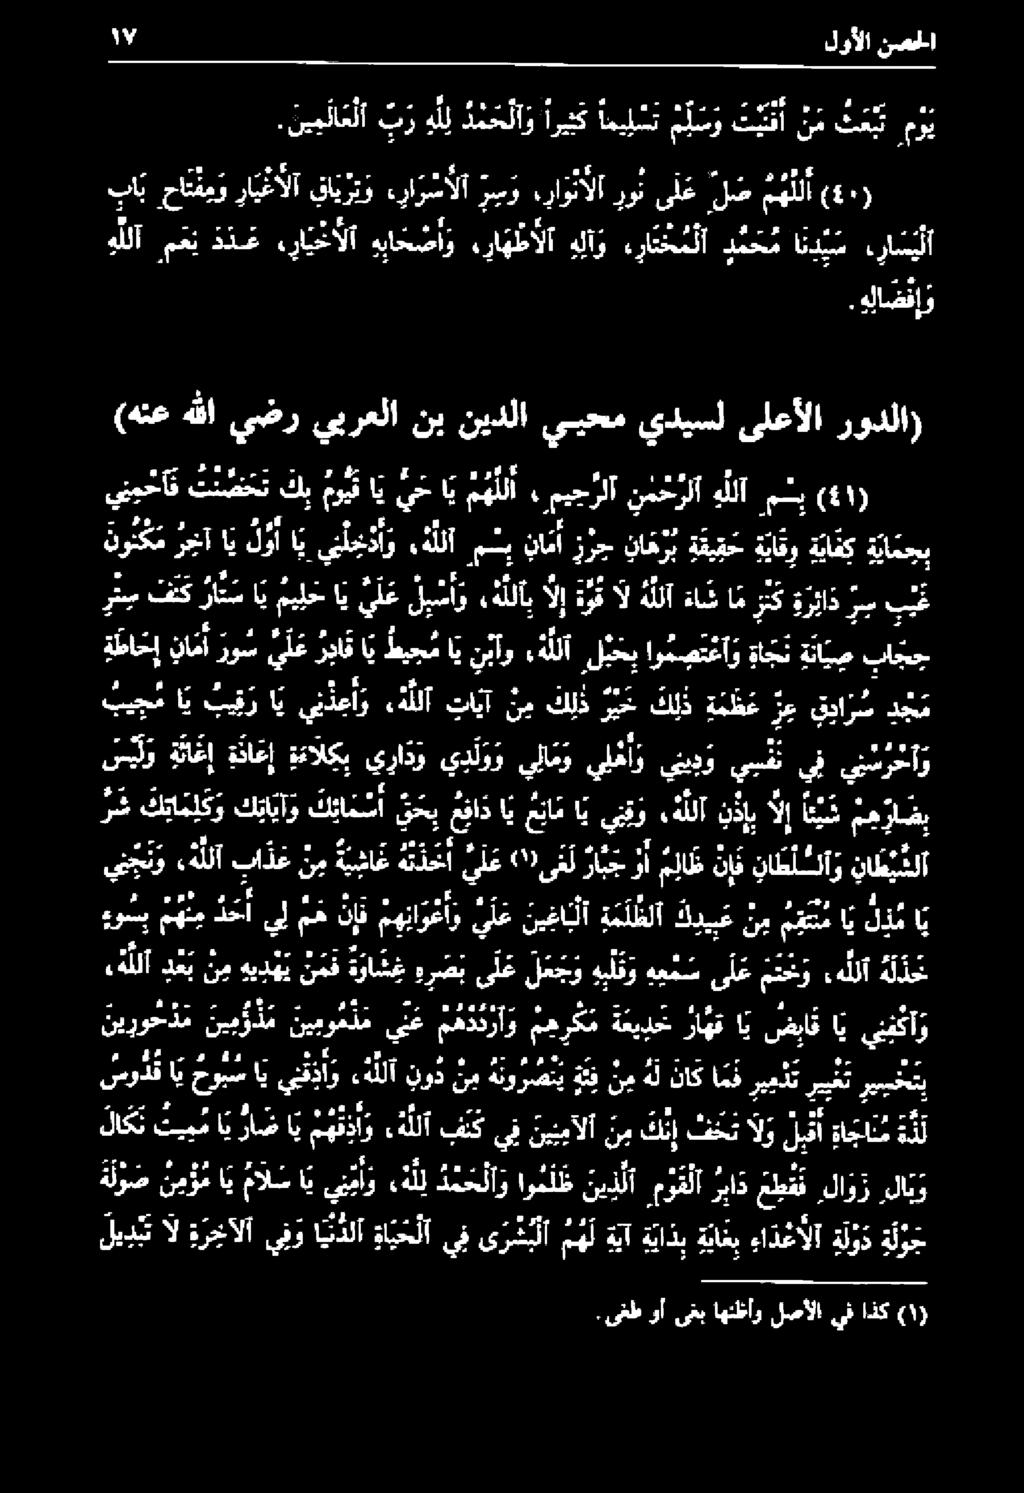 الحصن الأول ١٧
يَوْمِ تَبْعَثُ مَنْ أَفْنَيْتَ وَسَلِّمْ تَسْلِيماً كَثِيراً وَٱلْحَمْدُ لِلَّهِ رَبِّ ٱلْعَالَمِينَ.
(٤٠) أَللَّهُمَّ صَلِّ عَلَى نُورِ ٱلأَنْوَارِ، وَسِرِّ ٱلأَسْرَارِ، وَتِرْيَاقِ ٱلأَغْيَارِ وَمِفْتَاحِ بَابِ
ٱلْيَسَارِ، سَيِّدِنَا مُحَمَّدٍ ٱلْمُخْتَارِ، وَآلِهِ ٱلأَطْهَارِ، وَأَصْحَابِهِ ٱلأَخْيَارِ، عَدَدَ نِعَمِ ٱللَّهِ
وَإِفْضَالِهِ.
(الدور الأعلى لسيدي محيي الدين بن العربي رضي الله عنه)
(٤١) بِسْمِ ٱللَّهِ ٱلرَّحْمٰنِ ٱلرَّحِيمِ، أَللَّهُمَّ يَا حَيُّ يَا قَيُّومُ بِكَ تَحَصَّنْتُ فَٱحْمِنِي
بِحِمَايَةِ كِفَايَةِ وِقَايَةِ حَقِيقَةِ بُرْهَانِ حِرْزِ أَمَانِ بِسْمِ ٱللَّهِ، وَأَدْخِلْنِي يَا أَوَّلُ يَا آخِرُ مَكْنُونَ
غَيْبِ سِرِّ دَائِرَةِ كَنْزِ مَا شَاءَ ٱللَّهُ لاَ قُوَّةَ إِلاَّ بِٱللَّهِ، وَأَسْبِلْ عَلَيَّ يَا حَلِيمُ يَا سَتَّارُ كَنَفَ سِتْرِ
حِجَابِ صِيَانَةِ نَجَاةِ وَٱعْتَصِمُوا بِحَبْلِ ٱللَّهِ، وَٱبْنِ يَا مُحِيطُ يَا قَادِرُ عَلَيَّ سُورَ أَمَانِ إِحَاطَةِ
مَجْدِ سُرَادِقِ عِزِّ عَظَمَةِ ذٰلِكَ خَيْرٌ ذٰلِكَ مِنْ آيَاتِ ٱللَّهِ، وَأَعِذْنِي يَا رَقِيبُ يَا مُجِيبُ
وَٱحْرُسْنِي فِي نَفْسِي وَدِينِي وَأَهْلِي وَمَالِي وَوَلَدِي وَدَارِي بِكِلاَءَةِ إِعَاذَةِ إِغَاثَةِ وَلَيْسَ
بِضَارِّهِمْ شَيْئاً إِلاَّ بِإِذْنِ ٱللَّهِ، وَقِنِي يَا مَانِعُ يَا دَافِعُ بِحَقِّ أَسْمَائِكَ وَآيَاتِكَ وَكَلِمَاتِكَ شَرَّ
ٱلشَّيْطَانِ وَٱلسُّلْطَانِ فَإِن ظَالِمٌ أَوْ جَبَّارٌ لَغَى(١) عَلَيَّ أَخَذَتْهُ غَاشِيَةٌ مِنْ عَذَابِ ٱللَّهِ، وَنَجِّنِي
يَا مُذِلُّ يَا مُنْتَقِمُ مِنْ عَبِيدِكَ ٱلظَّلَمَةِ ٱلْبَاغِينَ عَلَيَّ وَأَعْوَانِهِمْ فَإِن هَمَّ لِي أَحَدٌ مِنْهُمْ بِسُوءٍ
خَذَلَهُ ٱللَّهُ، وَخَتَمَ عَلَى سَمْعِهِ وَقَلْبِهِ وَجَعَلَ عَلَى بَصَرِهِ غِشَاوَةً فَمَنْ يَهْدِيهِ مِنْ بَعْدِ ٱللَّهِ،
وَٱكْفِنِي يَا قَابِضُ يَا قَهَّارُ خَدِيعَةَ مَكْرِهِمْ وَٱرْدُدْهُمْ عَنِّي مَذْمُومِينَ مَذْؤُمِينَ مَدْحُورِينَ
بِتَخْسِيرِ تَغْيِيرِ تَدْمِيرِ فَمَا كَانَ لَهُ مِنْ فِئَةٍ يَنْصُرُونَهُ مِنْ دُونِ ٱللَّهِ، وَأَذِقْنِي يَا سُبُّوحُ يَا قُدُّوسُ
لَذَّةَ مُنَاجَاةِ أَقْبِلْ وَلاَ تَخَفْ إِنَّكَ مِنَ ٱلآمِنِينَ فِي كَنَفِ ٱللَّهِ، وَأَذِقْهُمْ يَا ضَارُّ يَا مُمِيتُ نَكَالَ
وَبَالِ زَوَالِ فَقُطِعَ دَابِرُ ٱلْقَوْمِ ٱلَّذِينَ ظَلَمُوا وَٱلْحَمْدُ لِلَّهِ، وَأَمِّنِّي يَا سَلاَمُ يَا مُؤْمِنُ صَوْلَةَ
جَوْلَةِ دَوْلَةِ ٱلأَعْدَاءِ بِغَايَةِ بِدَايَةِ آيَةِ لَهُمُ ٱلْبُشْرَى فِي ٱلْحَيَاةِ ٱلدُّنْيَا وَفِي ٱلآخِرَةِ لاَ تَبْدِيلَ
(١) كذا في الأصل وأظنها بغى أو طغى.